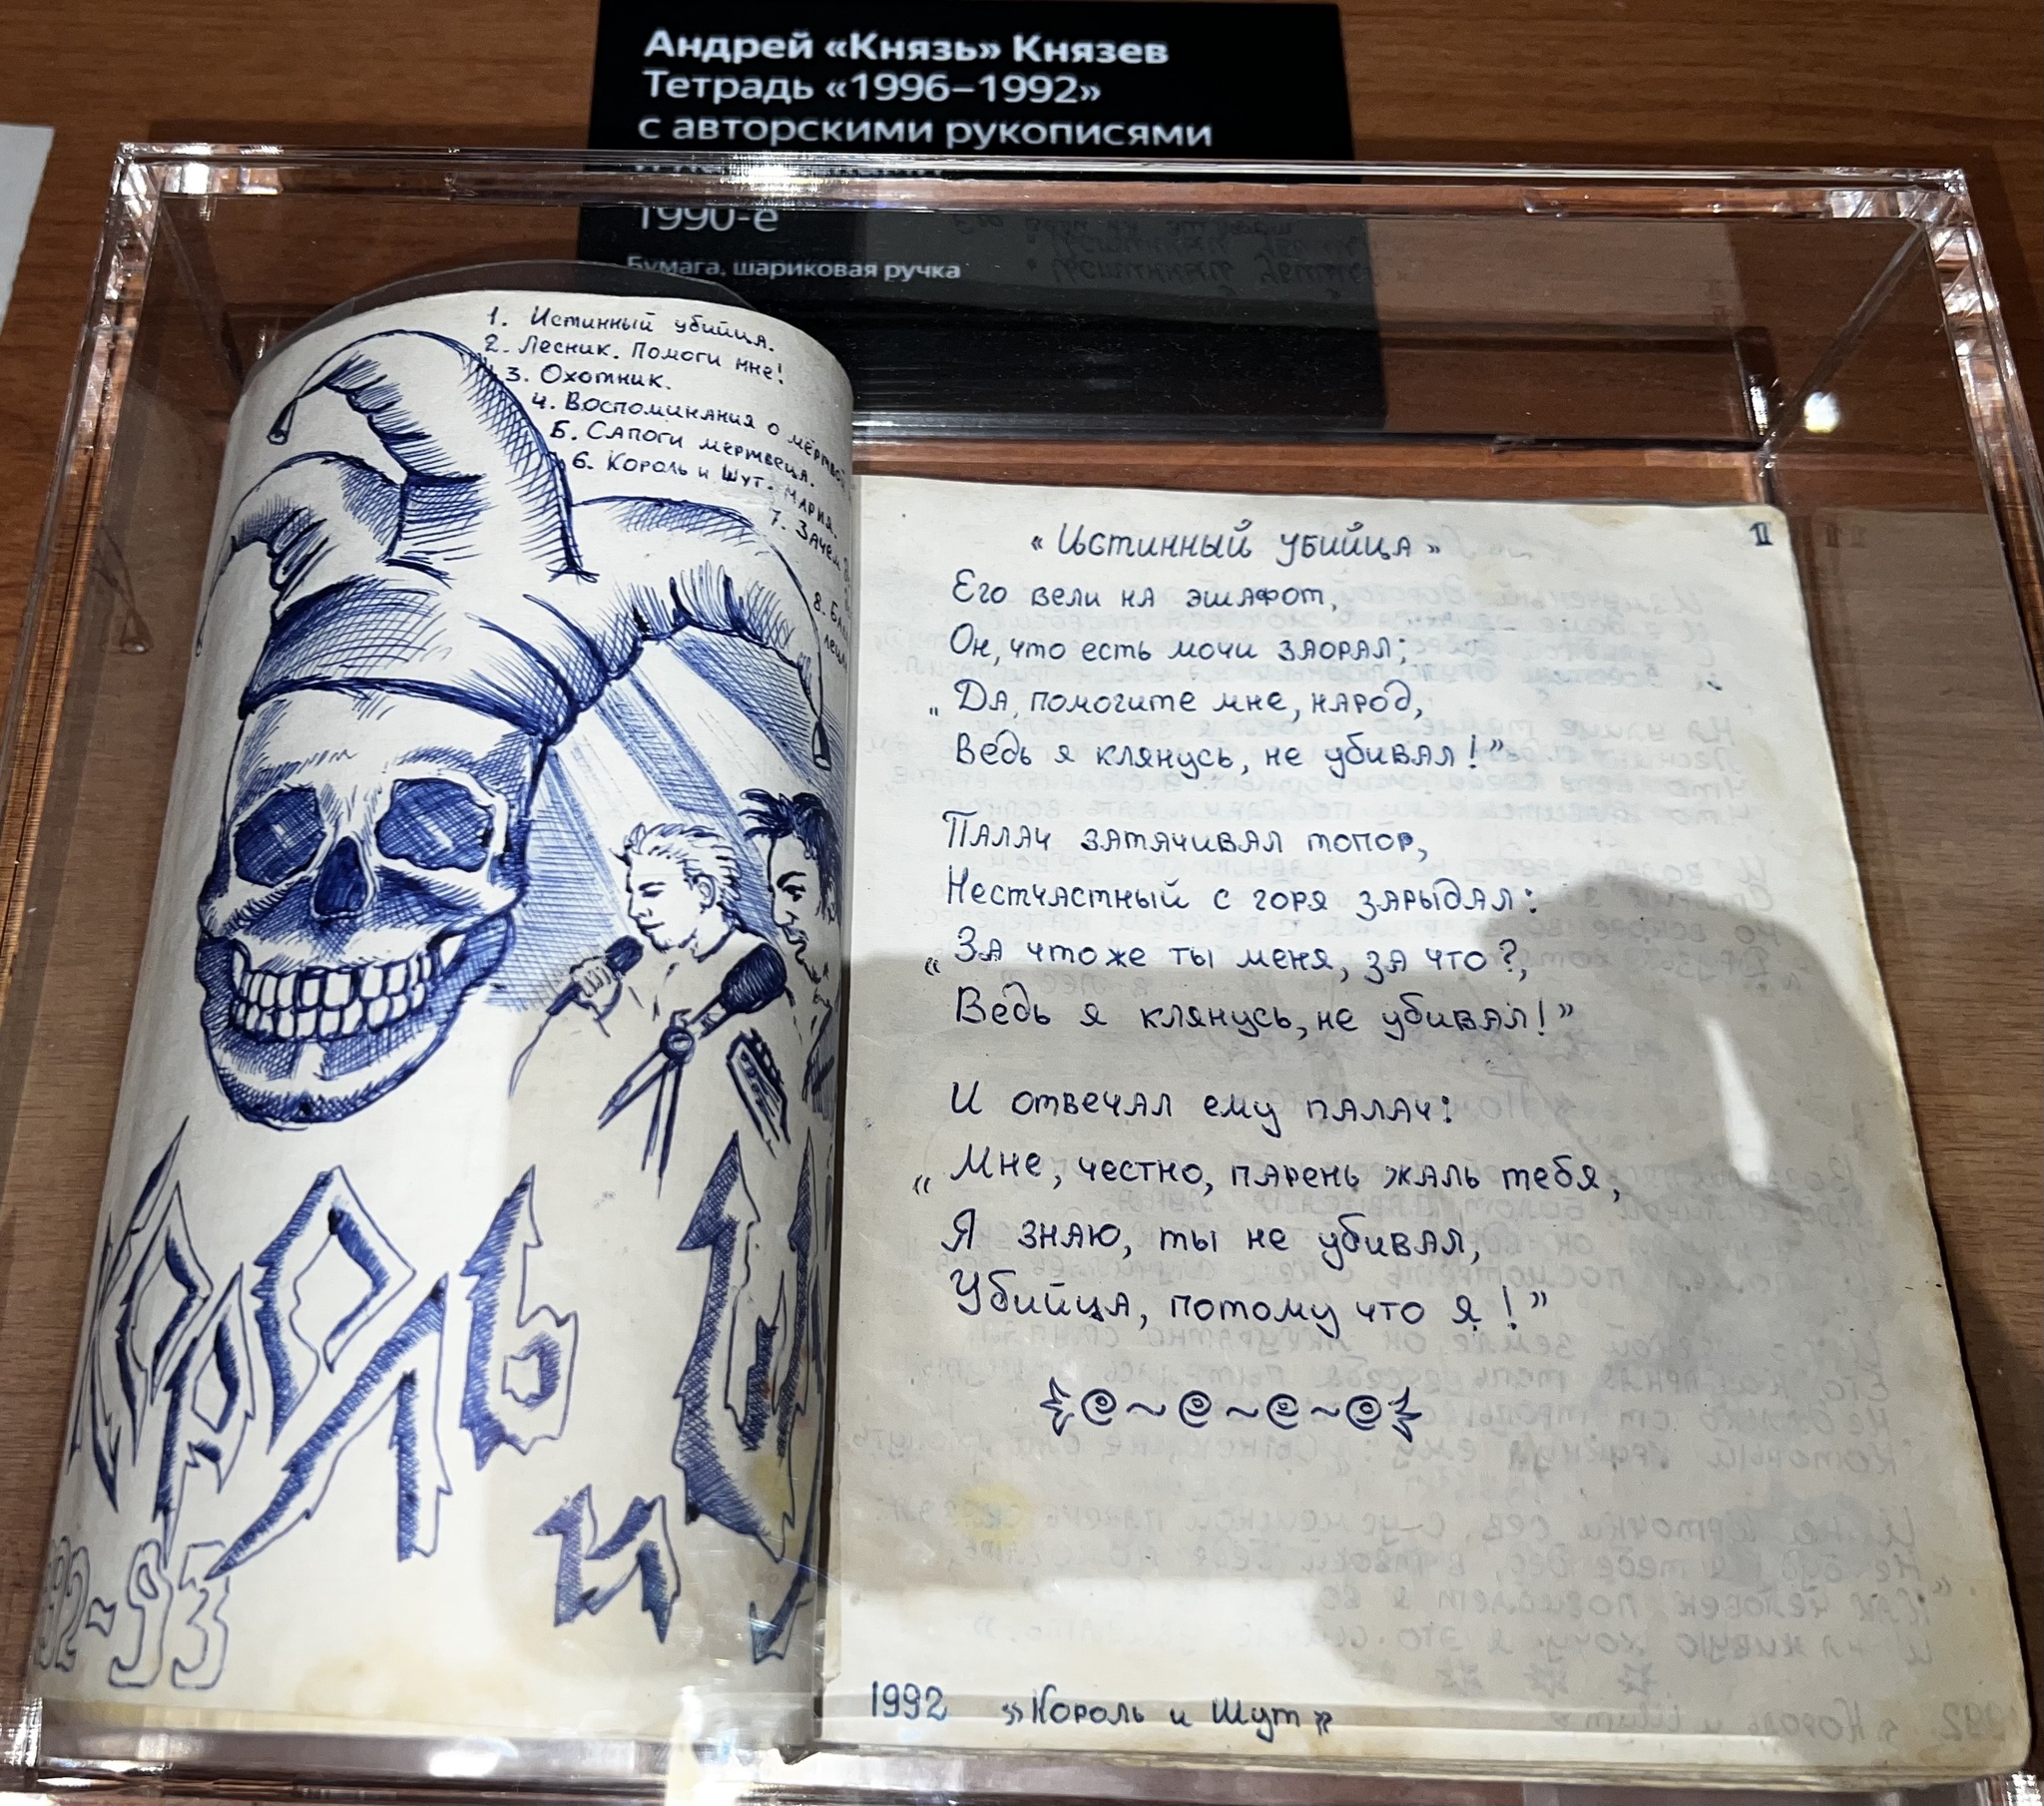 Андрей «Князь» Князев
Тетрадь «1996–1992»
с авторскими рукописями
1990-е
Бумага, шариковая ручка
1. Истинный убийца.
2. Лесник. Помоги мне!
3. Охотник.
4. Воспоминания о мёртвой
5. Сапоги мертвеца.
6. Король и Шут. Мария.
7. Зачем
8.
Король
и
92-93
1
«Истинный убийца»
Его вели на эшафот,
Он, что есть мочи заорал;
„Да, помогите мне, народ,
Ведь я клянусь, не убивал!”
Палач затачивал топор,
Нестчастный с горя зарыдал:
«За что же ты меня, за что?,
Ведь я клянусь, не убивал!»
И отвечал ему палач:
«Мне, честно, парень жаль тебя,
Я знаю, ты не убивал,
Убийца, потому что я!»
1992 »Король и Шут»